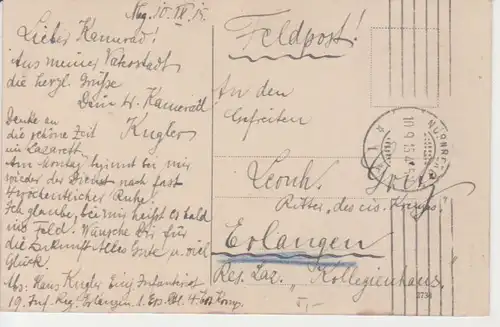 Nbg. 10. IX. 15.
Lieber Kamerad!
Aus meiner Vaterstadt
die herzl. Grüße
Dein tr. Kamerad
Kugler
Denke an
die schöne Zeit
im Lazarett.
Am Montag beginnt bei mir
wieder der Dienst nach fast
4 wöchentlicher Ruhe!
Ich glaube, bei mir heißt es bald
ins Feld. Wünsche Dir für
die Zukunft Alles Gute u. viel
Glück.
Abs. Hans Kugler Einj. Infanterist
19. Inf. Reg. Erlangen 1. Ers. Btl. 4. Komp.
Feldpost!
An den
Gefreiten
Leonh.
Ritter „des eis. Kreuzes"
Erlangen
Res. Laz. „Kollegienhaus"
I,-
2734
NUERNBERG
10 9 15